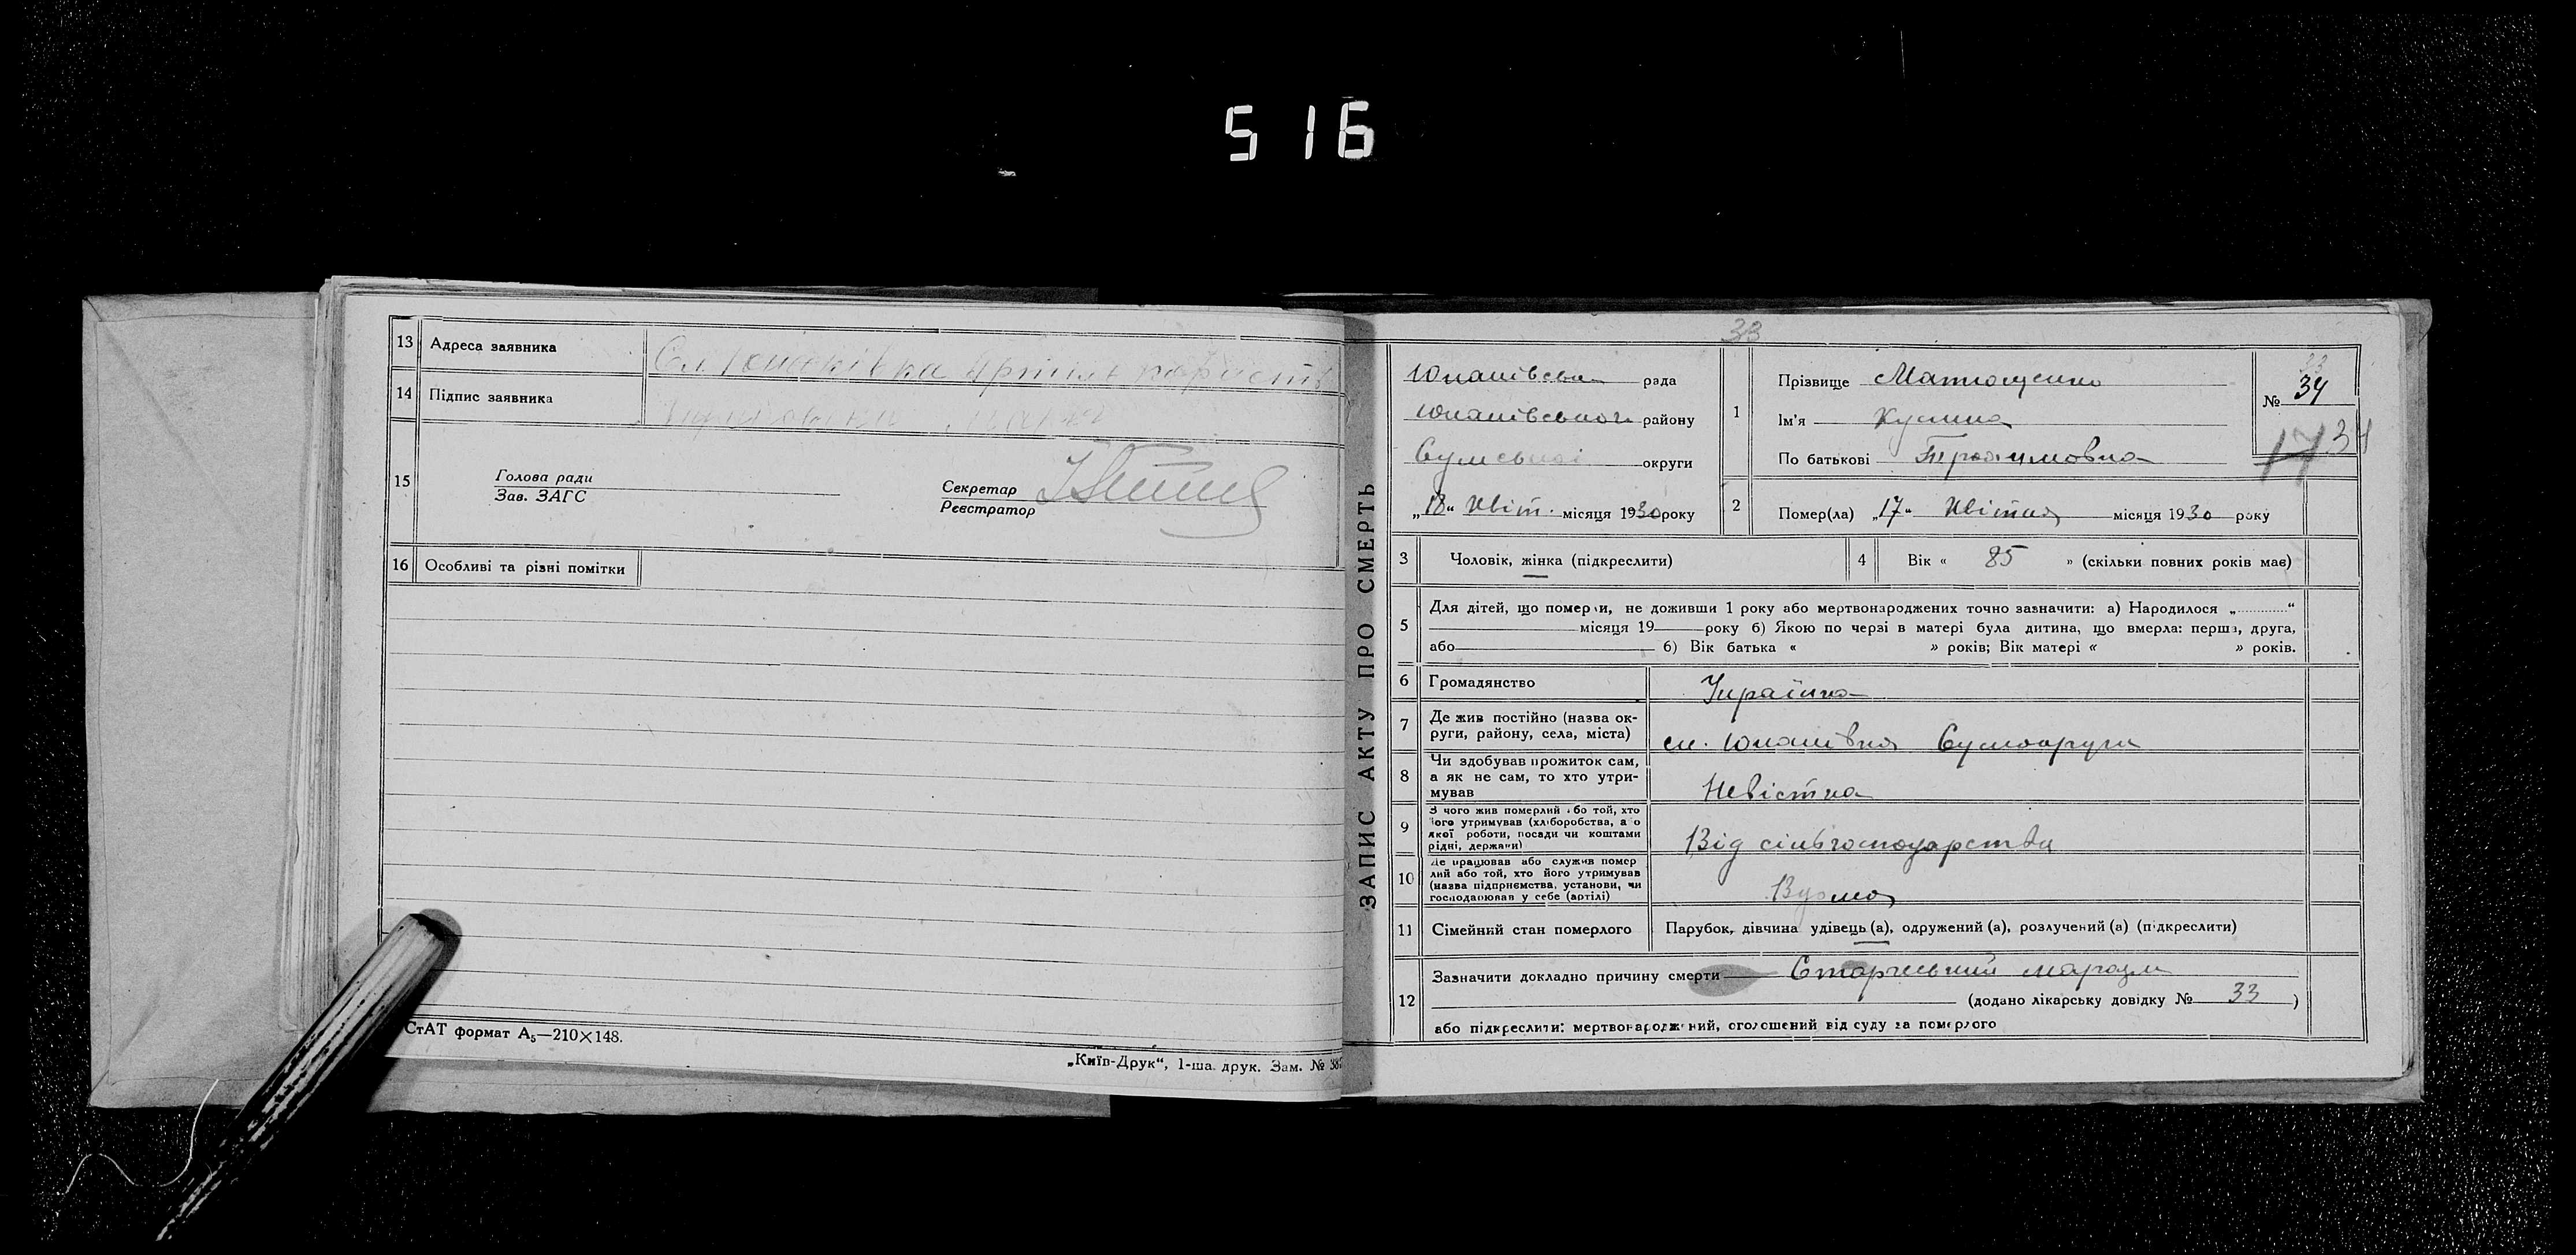 516
13 Адреса заявника
14 Підпис заявника
15 Голова ради
Зав. ЗАГС
Секретар
Реєстратор
16 Особливі та різні помітки
СтАТ формат А₅—210×148.
„Київ-Друк“, 1-ша друк. Зам. №
ЗАПИС АКТУ ПРО СМЕРТЬ
33
Юнаківська рада
Юнаківського району
Сумської округи
„18“ Квіт. місяця 1930 року
1 Прізвище Матющенко
Ім'я
По батькові
33
№ 34
17 34
2 Помер(ла) „17“ Квітня місяця 1930 року
3 Чоловік, жінка (підкреслити)
4 Вік « 85 » (скільки повних років має)
5 Для дітей, що померли, не доживши 1 року або мертвонароджених точно зазначити: а) Народилося „ “
місяця 19 року б) Якою по черзі в матері була дитина, що вмерла: перша, друга,
або б) Вік батька « » років; Вік матері « » років.
6 Громадянство Українка
7 Де жив постійно (назва ок-
руги, району, села, міста) сл. Юнаківка Сумокруги
8 Чи здобував прожиток сам,
а як не сам, то хто утри-
мував Невістка
9 З чого жив померлий або той, хто
його утримував (хліборобства, або
якої роботи, посади чи коштами
рідні, держави) Від сільгосподарства
10 Де працював або служив помер
лий або той, хто його утримував
(назва підприємства, установи, чи
господарював у себе (артілі) Вдома
11 Сімейний стан померлого Парубок, дівчина удівець (а), одружений (а), розлучений (а) (підкреслити)
12 Зазначити докладно причину смерти Старческий маразм
(додано лікарську довідку № 33 )
або підкреслити: мертвонароджений, оголошений від суду за померлого